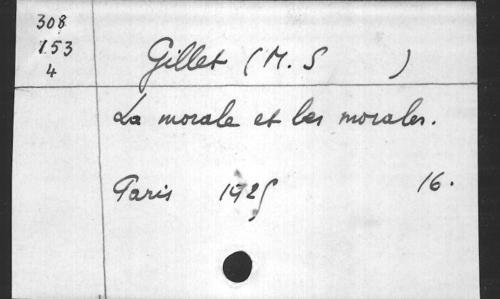 308
153
4
Gillet (M. S )
La morale et les morales.
Paris 1925 16.